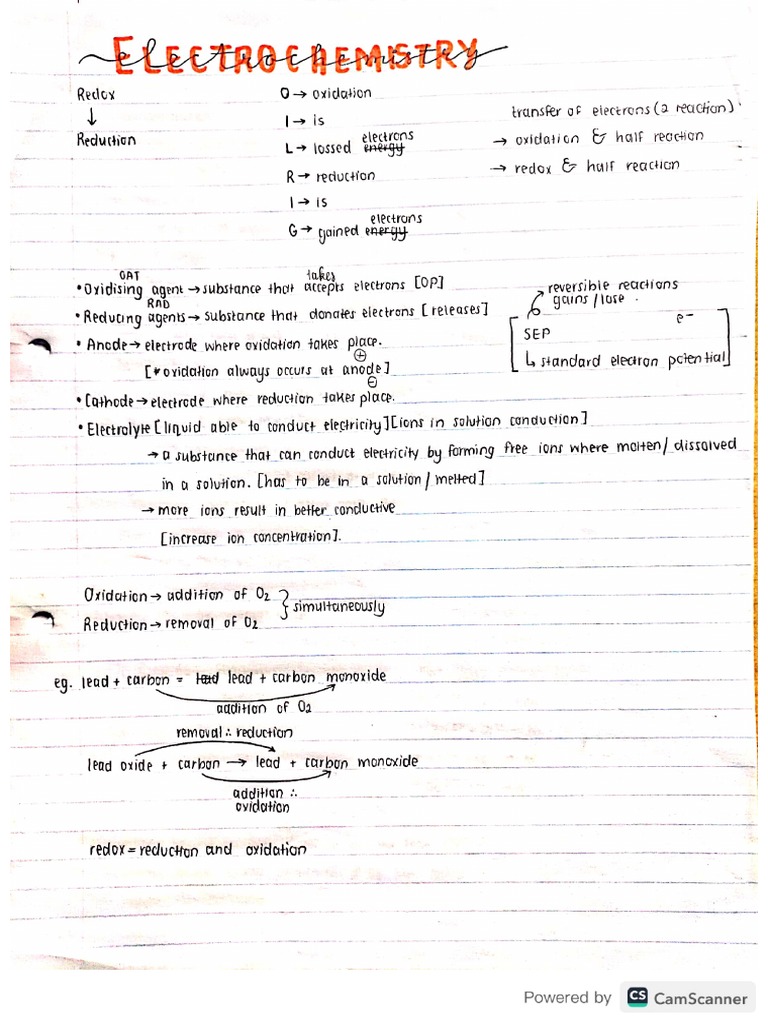 ELECTROCHEMISTRY
electrochemistry
Redox
↓
Reduction
O → oxidation
I → is
L → lossed energy electrons
R → reduction
I → is
G → gained energy electrons
transfer of electrons (2 reaction)
→ oxidation & half reaction
→ redox & half reaction
OAT takes
• Oxidising agent → substance that accepts electrons [OP]
RAD
• Reducing agents → substance that donates electrons [releases]
• Anode → electrode where oxidation takes place.
⊕
[* oxidation always occurs at anode]
⊖
• Cathode → electrode where reduction takes place.
reversible reactions
gains/lose.
e⁻
SEP
↳ standard electron potential
• Electrolyte [liquid able to conduct electricity] [ions in solution conduction]
→ a substance that can conduct electricity by forming free ions where molten/dissolved
in a solution. [has to be in a solution/melted]
→ more ions result in better conductive
[increase ion concentration].
Oxidation → addition of O₂ } simultaneously
Reduction → removal of O₂
eg. lead + carbon = lead + carbon monoxide
addition of O₂
removal ∴ reduction
lead oxide + carbon → lead + carbon monoxide
addition ∴
oxidation
redox = reduction and oxidation
Powered by CS CamScanner